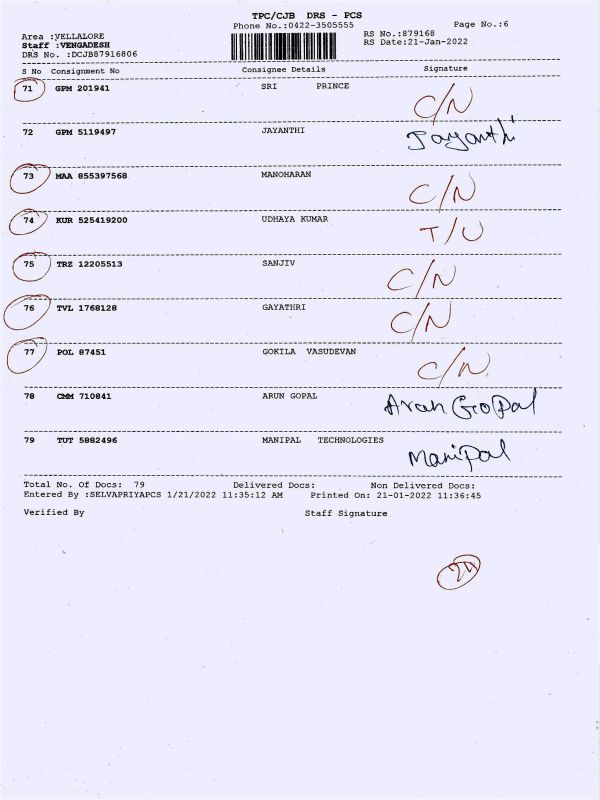 TPC/CJB DRS - PCS
Phone No.:0422-3505555 Page No.:6
Area :VELLALORE RS No.:879168
Staff :VENGADESH RS Date:21-Jan-2022
DRS No. :DCJB87916806
S No Consignment No Consignee Details Signature
71 GPM 201941 SRI PRINCE C/N
72 GPM 5119497 JAYANTHI Jayanthi
73 MAA 855397568 MANOHARAN C/N
74 KUR 525419200 UDHAYA KUMAR T/U
75 TRZ 12205513 SANJIV C/N
76 TVL 1768128 GAYATHRI C/N
77 POL 87451 GOKILA VASUDEVAN C/N
78 CMM 710841 ARUN GOPAL Arun Gopal
79 TUT 5882496 MANIPAL TECHNOLOGIES Manipal
Total No. Of Docs: 79 Delivered Docs: Non Delivered Docs:
Entered By :SELVAPRIYAPCS 1/21/2022 11:35:12 AM Printed On: 21-01-2022 11:36:45
Verified By Staff Signature